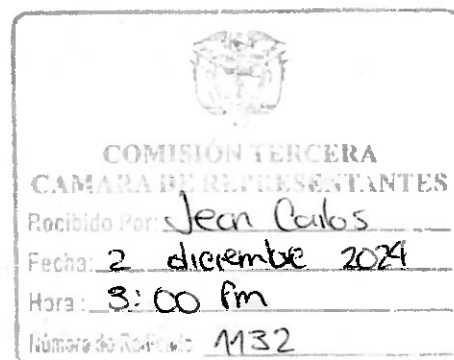 COMISIÓN TERCERA
CAMARA DE REPRESENTANTES
Recibido Por: Jean Carlos
Fecha: 2 diciembre 2024
Hora: 3:00 pm
Número de Radicado: 1132